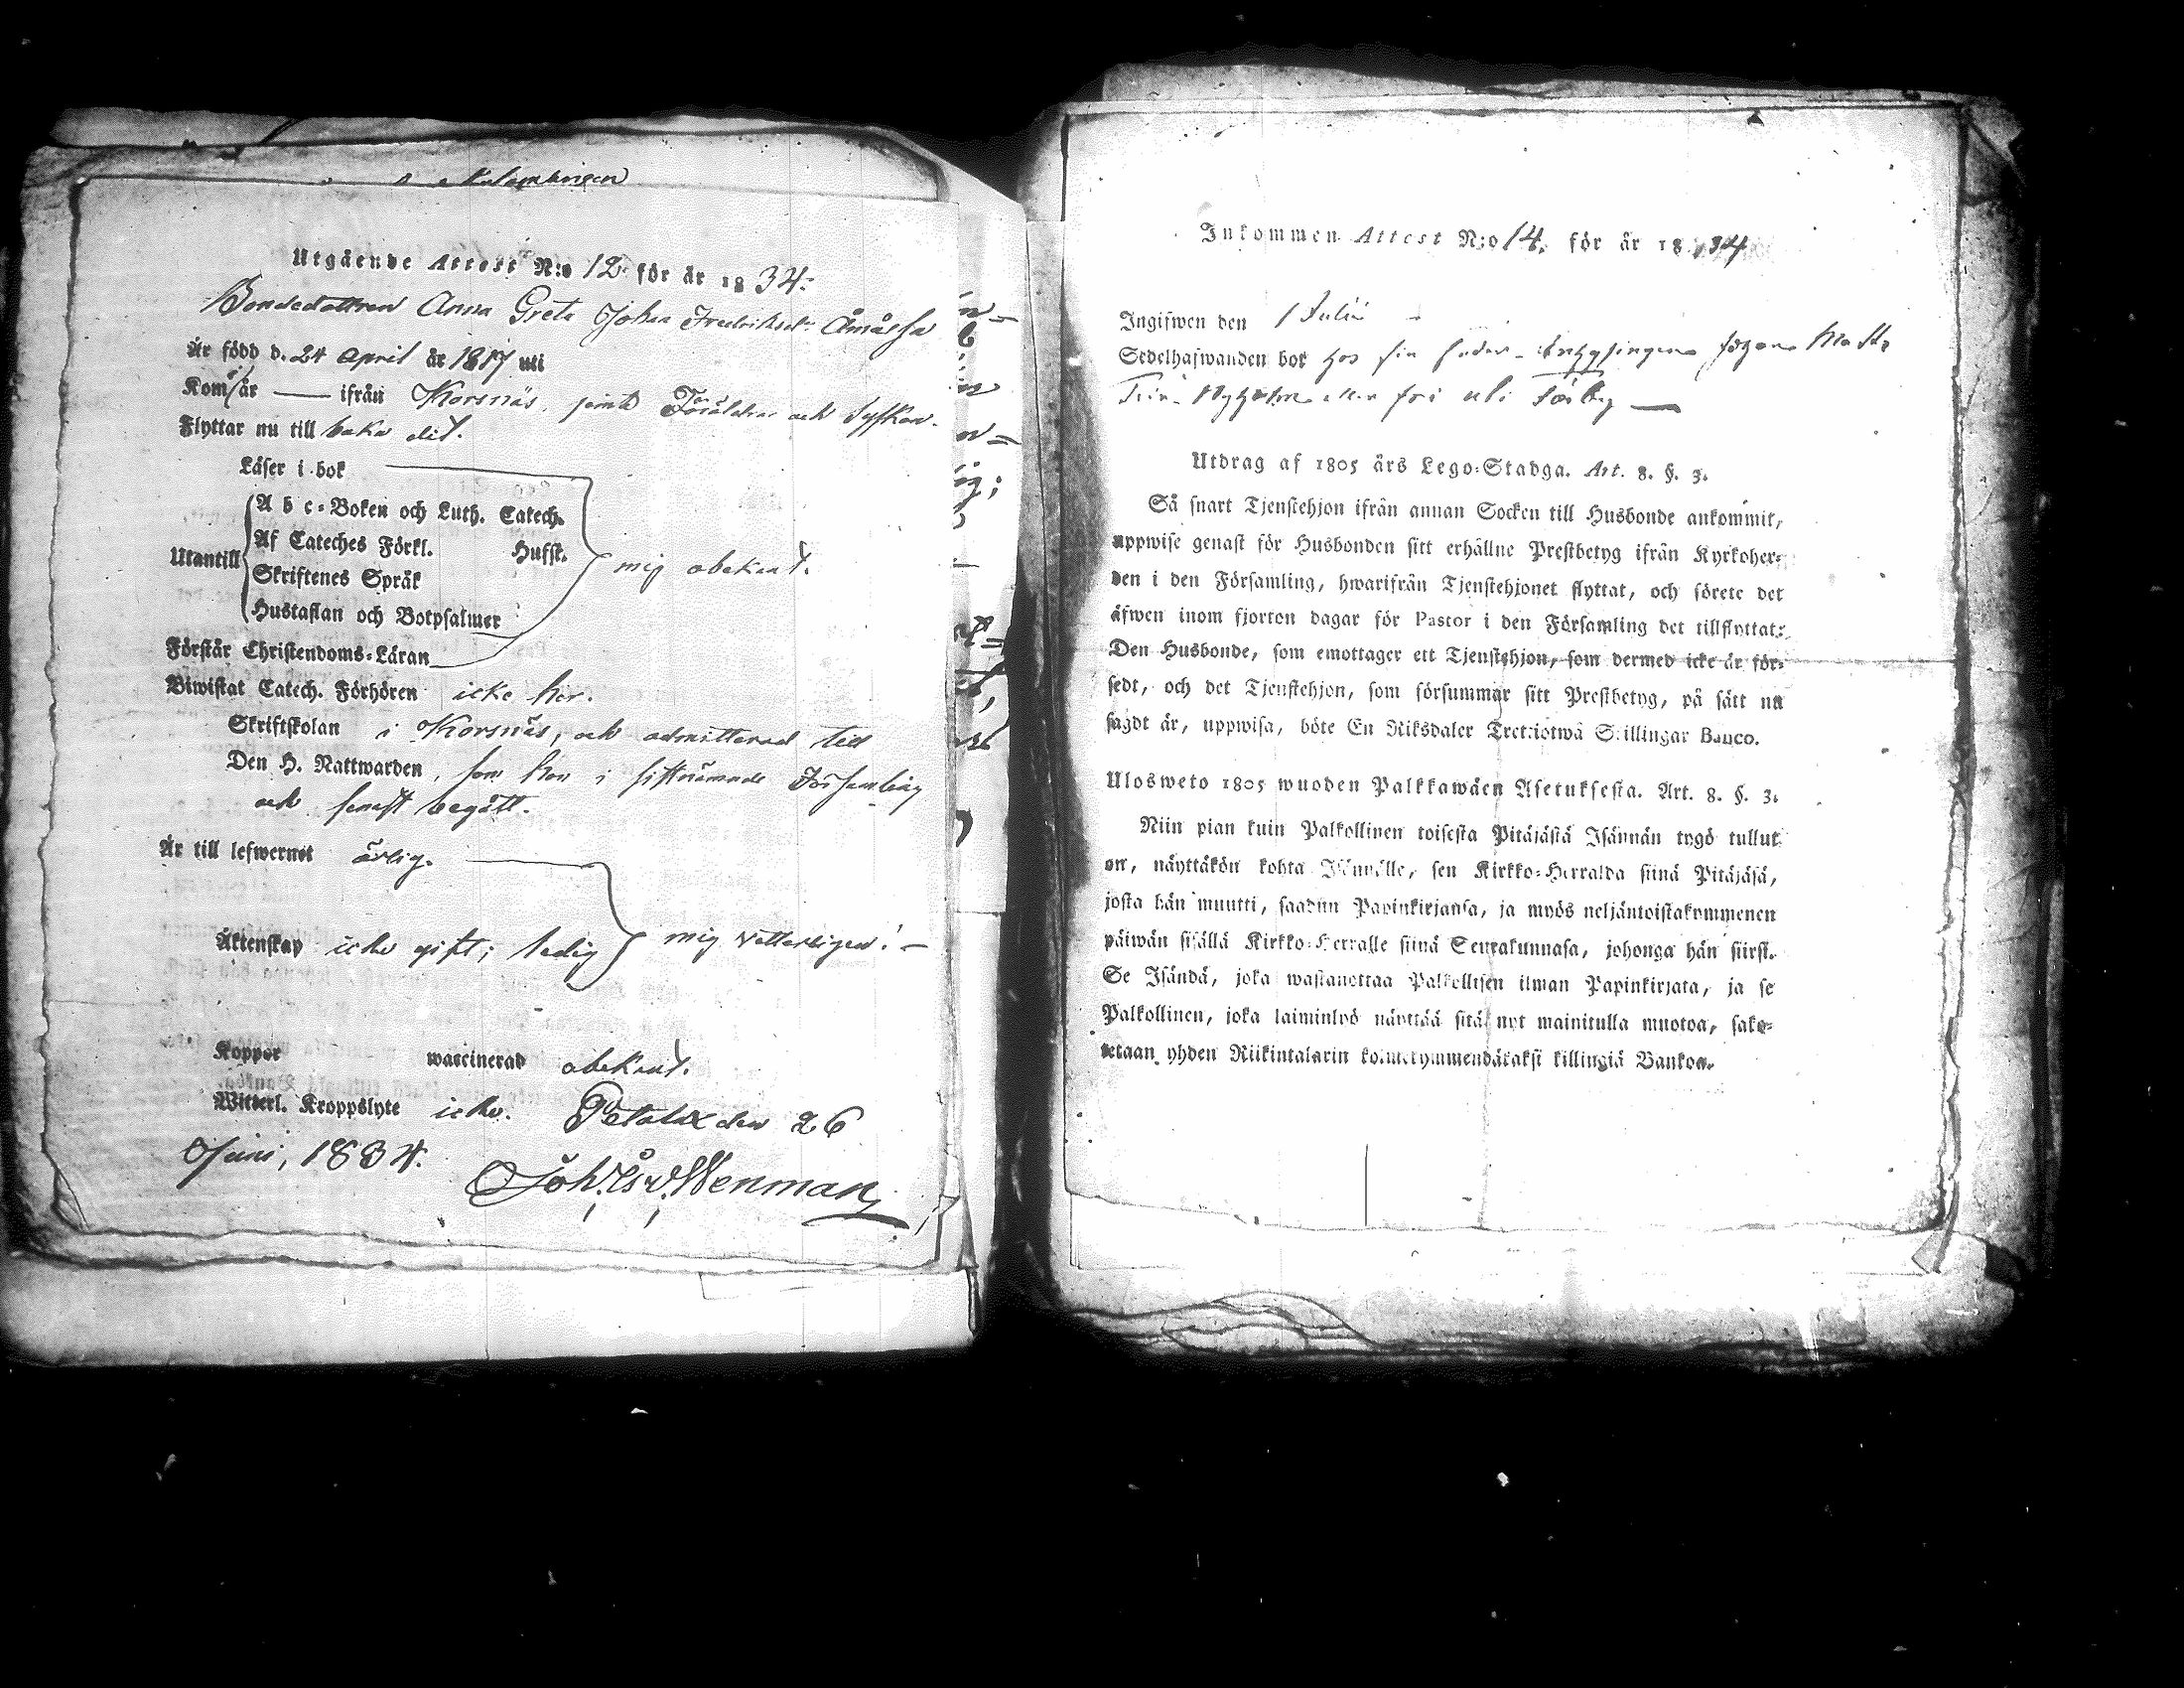 Utgående Attest N:o 12 för år 1834.
Bondedottren Anna Greta Johan Fredriksdr Åmåssa
Är född d. 24 April år 1817 uti
Kom år — ifrån Korsnäs, jemte Föräldrar och Syskon.
Flyttar nu till baka dit.
Läser i bok
A b c-Boken och Luth. Catech.
Af Cateches Förkl. Hufst.
Utantill
Skriftenes Språk
mig obekant.
Hustaflan och Botpsalmer
Förstår Christendoms-Läran
Biwistat Catech. Förhören icke här.
Skriftskolan i Korsnäs, och admitterad till
Den H. Nattwarden, som hon i sistnämnde Församling
och senast begått.
Är till lefwernet ärlig.
Äktenskap icke gift; ledig mig vetterligen! —
Koppor waccinerad obekant.
Witterl. Kroppslyte icke. Petalax den 26
Juni, 1834.
Joh. Is. Wenman
Inkommen Attest N:o 14. för år 1834
Ingifwen den 1 Julii
Sedelhafwanden bor hos sin
Utdrag af 1805 års Lego-Stadga. Art. 8. §. 3.
Så snart Tjenstehjon ifrån annan Socken till Husbonde ankommit,
uppwise genast för Husbonden sitt erhållne Prestbetyg ifrån Kyrkoher-
den i den Församling, hwarifrån Tjenstehjonet flyttat, och förete det
äfwen inom fjorton dagar för Pastor i den Församling det tillflyttat:
Den Husbonde, som emottager ett Tjenstehjon, som dermed icke är för-
sedt, och det Tjenstehjon, som försummar sitt Prestbetyg, på sätt nu
sagdt är, uppwisa, böte En Riksdaler Trettiotwå Skillingar Banco.
Ulosweto 1805 wuoden Palkkawäen Asetuksesta. Art. 8. §. 3.
Niin pian kuin Palkollinen toisesta Pitäjästä Isännän tygö tullut
on, näyttäkön kohta Isännälle, sen Kirkko-Herralda siinä Pitäjäsä,
josta hän muutti, saadun Papinkirjansa, ja myös neljäntoistakymmenen
päiwän sisällä Kirkko-Herralle siinä Seurakunnasa, johonga hän siirsi.
Se Isändä, joka wastanottaa Palkollisen ilman Papinkirjata, ja se
Palkollinen, joka laiminlyö näyttää sitä nyt mainitulla muotoa, sako-
tetaan yhden Riikintalarin kolmekymmendäkaksi killingiä Bankoa.